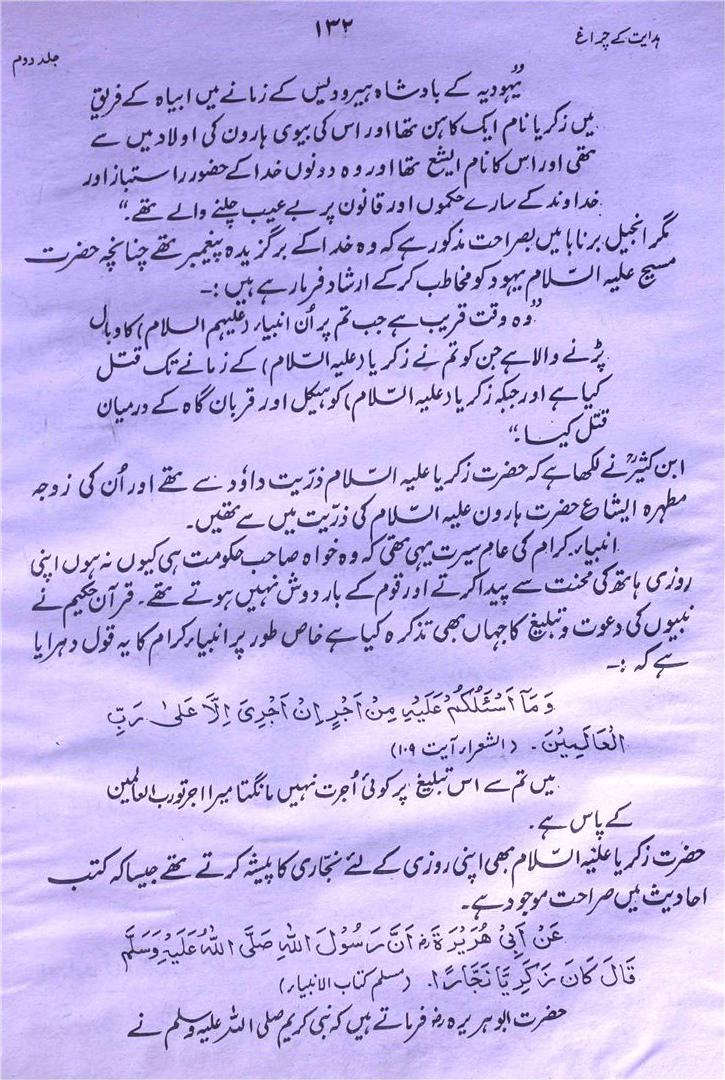 ہدایت کے چراغ
۱۳۲
جلد دوم
"یہودیہ کے بادشاہ ہیرودیس کے زمانے میں ابیاہ کے فریق
میں زکریا نام ایک کاہن تھا اور اس کی بیوی ہارون کی اولاد میں سے
تھی اور اس کا نام ایشع تھا اور وہ دونوں خدا کے حضور راستباز اور
خداوند کے سارے حکموں اور قانون پر بے عیب چلنے والے تھے۔"
مگر انجیل برنابا میں بصراحت مذکور ہے کہ وہ خدا کے برگزیدہ پیغمبر تھے چنانچہ حضرت
مسیح علیہ السّلام یہود کو مخاطب کرکے ارشاد فرما رہے ہیں :۔
"وہ وقت قریب ہے جب تم پر اُن انبیاء (علیہم السلام) کا وبال
پڑنے والا ہے جن کو تم نے زکریا (علیہ السّلام) کے زمانے تک قتل
کیا ہے اور جبکہ زکریا (علیہ السّلام) کو ہیکل اور قربان گاہ کے درمیان
قتل کیا۔"
ابن کثیرؒ نے لکھا ہے کہ حضرت زکریا علیہ السّلام ذرّیت داؤد سے تھے اور اُن کی زوجہ
مطہرہ ایشاع حضرت ہارون علیہ السّلام کی ذرّیت میں سے تھیں۔
انبیاء کرام کی عام سیرت یہی تھی کہ وہ خواہ صاحب حکومت ہی کیوں نہ ہوں اپنی
روزی ہاتھ کی محنت سے پیدا کرتے اور قوم کے بار دوش نہیں ہوتے تھے۔ قرآن حکیم نے
نبیوں کی دعوت و تبلیغ کا جہاں بھی تذکرہ کیا ہے خاص طور پر انبیاء کرام کا یہ قول دہرایا
ہے کہ :۔
وَمَآ اَسْئَلُكُمْ عَلَيْهِ مِنْ اَجْرٍ اِنْ اَجْرِیَ اِلَّا عَلىٰ رَبِّ
الْعَالَمِيْنَ۔ (الشعراء آیت ۱۰۹)
میں تم سے اس تبلیغ پر کوئی اُجرت نہیں مانگتا میرا اجر تو رب العالمین
کے پاس ہے۔
حضرت زکریا علیہ السّلام بھی اپنی روزی کے لئے نجّاری کا پیشہ کرتے تھے جیسا کہ کتب
احادیث میں صراحت موجود ہے۔
عَنْ اَبِیْ هُرَيْرَةَ رضؓ اَنَّ رَسُوْلَ اللهِ صَلَّى اللهُ عَلَيْهِ وَسَلَّمَ
قَالَ كَانَ زَكَرِيَّا نَجَّارًا۔ (مسلم کتاب الانبیاء)
حضرت ابو ہریرہ رضؓ فرماتے ہیں کہ نبی کریم صلی اللہ علیہ وسلم نے